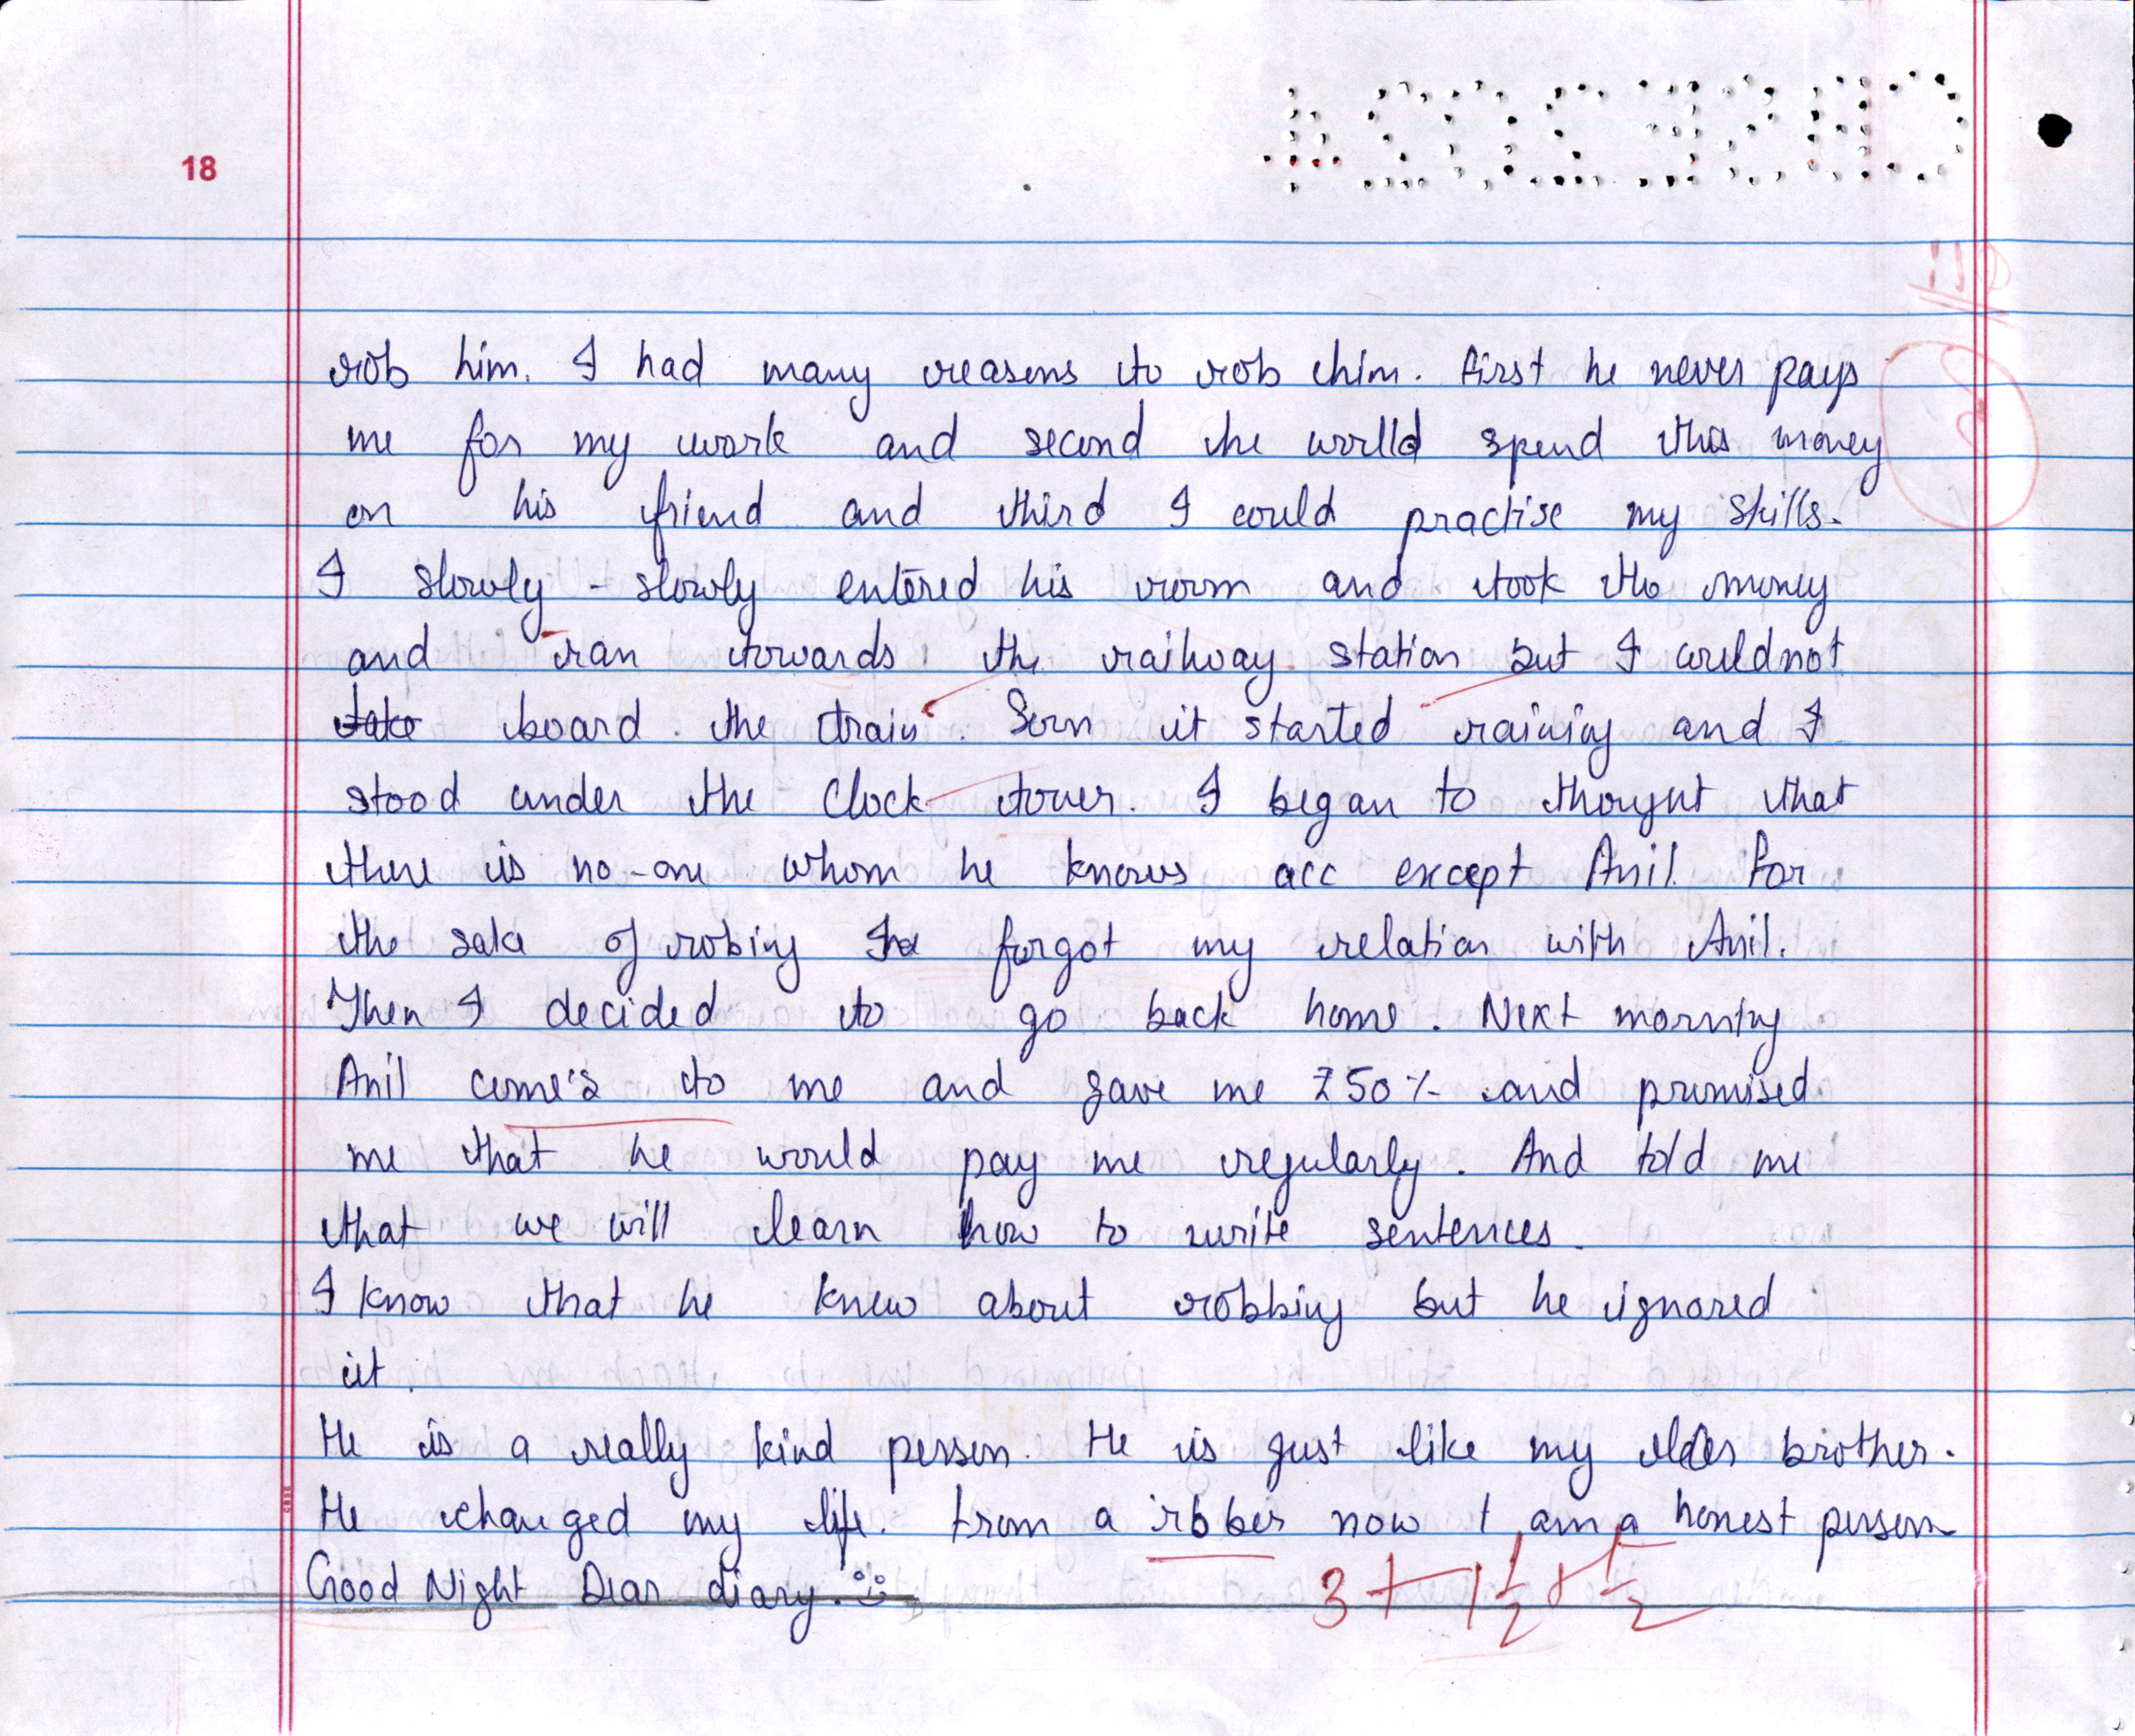 18
rob him. I had many reasons to rob him. first he never pays
me for my work and second he would spend this money
on his friend and third I could practise my skills.
I slowly - slowly entered his room and took the money
and ran towards the railway station but I couldnot
take board the train. Soon it started raining and I
stood under the Clock tower. I began to thought that
there is no-one whom he knows acc except Anil. For
the sake of robing I forgot my relation with Anil.
Then I decided to go back home. Next morning
Anil come's to me and gave me ₹50/- and promised
me that he would pay me regularly. And told me
that we will learn how to write sentences.
I know that he knew about robbing but he ignored
it.
He is a really kind person. He is just like my elder brother.
He changed my life. From a robber now I am a honest person
Good Night Dear diary.
3+1½+½